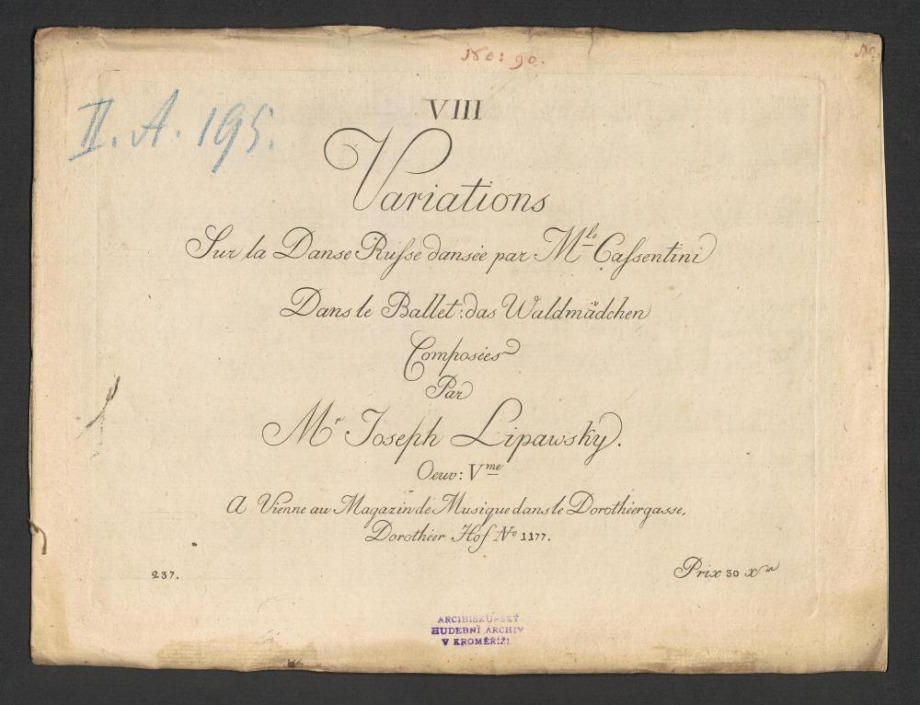 No: 90.
No
II. A. 195.
VIII
Variations
Sur la Danse Russe dansée par M<sup>lle</sup> Cassentini
Dans le Ballet: das Waldmädchen
Composées
Par
M<sup>r</sup> Joseph Lipawsky.
Oeuv: V<sup>me</sup>
A Vienne au Magazin de Musique dans le Dorothéergasse,
Dorothéer Hof N<sup>o</sup> 1177.
237.
Prix 30 x<sup>r</sup>
ARCIBISKUPSKÝ
HUDEBNÍ ARCHIV
V KROMĚŘÍŽI